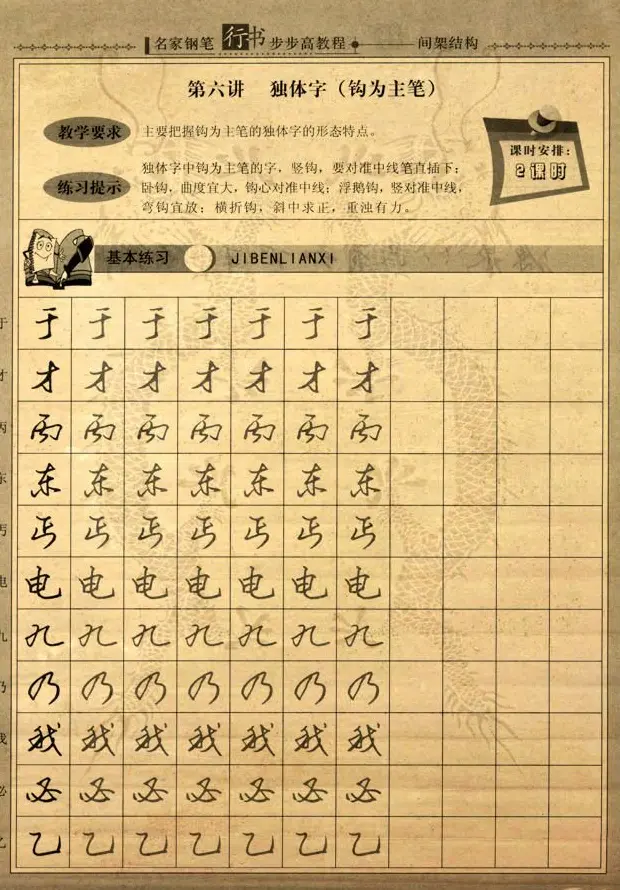 名家钢笔 行书 步步高教程 间架结构
第六讲 独体字（钩为主笔）
教学要求 主要把握钩为主笔的独体字的形态特点。
课时安排：
2课时
练习提示
独体字中钩为主笔的字，竖钩，要对准中线笔直插下；
卧钩，曲度宜大，钩心对准中线；浮鹅钩，竖对准中线，
弯钩宜放；横折钩，斜中求正，重浊有力。
基本练习 JIBENLIANXI
于 于 于 于 于 于 于 于
才 才 才 才 才 才 才 才
丙 丙 丙 丙 丙 丙 丙 丙
东 东 东 东 东 东 东 东
丐 丐 丐 丐 丐 丐 丐 丐
电 电 电 电 电 电 电 电
九 九 九 九 九 九 九 九
乃 乃 乃 乃 乃 乃 乃 乃
我 我 我 我 我 我 我 我
必 必 必 必 必 必 必 必
乙 乙 乙 乙 乙 乙 乙 乙